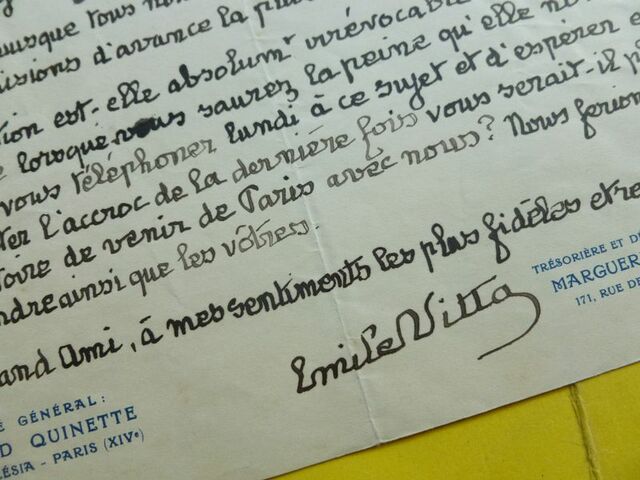 puisque vous no
isions d'avance la plu
tion est-elle absolumt irrévocable
e lorsque vous saurez la peine qu'elle no
vous téléphoner lundi à ce sujet et d'espérer
ter l'accroc de la dernière fois vous serait-il p
toire de venir de Paris avec nous? Nous ferion
ndre ainsi que les vôtres.
and Ami, à mes sentiments les plus fidèles et re
Emile Vitta
TRÉSORIÈRE ET D
MARGUER
171, RUE DE
É GÉNÉRAL:
D QUINETTE
LÉSIA - PARIS (XIVe)